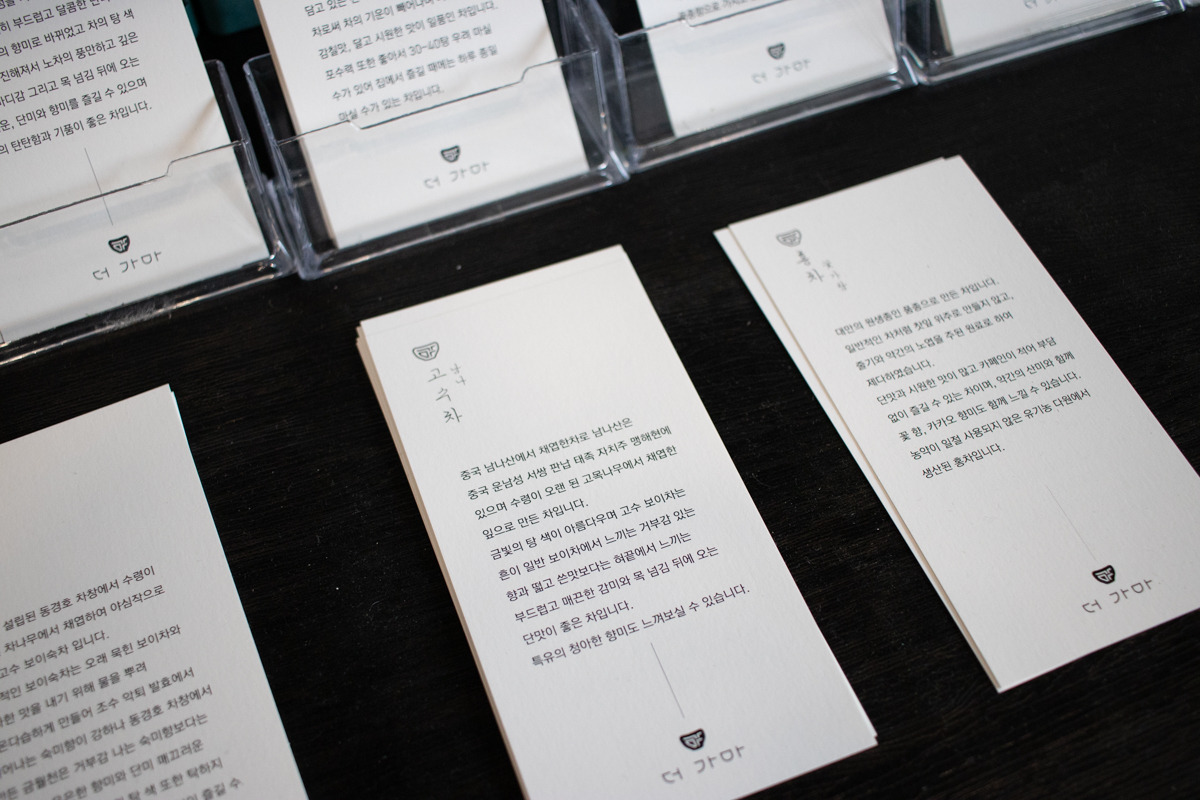 히 부드럽고 달콤한
의 향미로 바뀌었고 차의 탕 색
진해져서 노차의 풍만하고 깊은
바디감 그리고 목 넘김 뒤에 오는
운, 단미와 향미를 즐길 수 있으며
의 탄탄함과 기품이 좋은 차입니다.
더 가마
담고 있는
차로써 차의 기운이 빼어나며
감칠맛, 달고 시원한 맛이 일품인 차입니다.
포수력 또한 좋아서 30-40탕 우려 마실
수가 있어 집에서 즐길 때에는 하루 종일
마실 수가 있는 차입니다.
더 가마
더 가마
설립된 동경호 차창에서 수령이
차나무에서 채엽하여 야심작으로
고수 보이숙차 입니다.
적인 보이숙차는 오래 묵힌 보이차와
한 맛을 내기 위해 물을 뿌려
온다습하게 만들어 조수 악퇴 발효에서
어나는 숙미향이 강하나 동경호 차창에서
만든 금월천은 거부감 나는 숙미향보다는
은은한 향미와 단미 매끄러운
탕 색 또한 탁하지
즐길 수
고수차
남나
중국 남나산에서 채엽한차로 남나산은
중국 운남성 서쌍 판납 태족 자치주 맹해현에
있으며 수령이 오랜 된 고목나무에서 채엽한
잎으로 만든 차입니다.
금빛의 탕 색이 아름다우며 고수 보이차는
흔이 일반 보이차에서 느끼는 거부감 있는
향과 떫고 쓴맛보다는 혀끝에서 느끼는
부드럽고 매끈한 감미와 목 넘김 뒤에 오는
단맛이 좋은 차입니다.
특유의 청아한 향미도 느껴보실 수 있습니다.
더 가마
홍차
대만의 원생종인 품종으로 만든 차입니다.
일반적인 차처럼 찻잎 위주로 만들지 않고,
줄기와 약간의 노엽을 주된 원료로 하여
제다하였습니다.
단맛과 시원한 맛이 않고 카페인이 적어 부담
없이 즐길 수 있는 차이며, 약간의 산미와 함께
꽃 향, 카카오 향미도 함께 느낄 수 있습니다.
농약이 일절 사용되지 않은 유기농 다원에서
생산된 홍차입니다.
더 가마